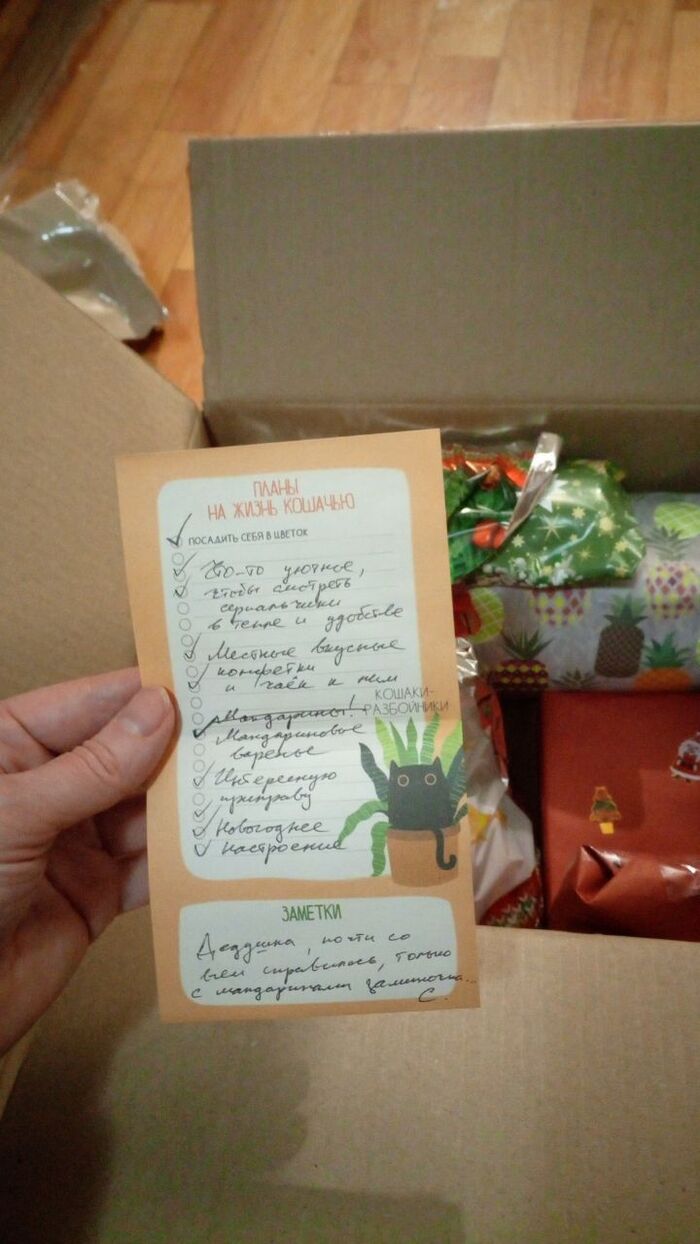 ПЛАНЫ
НА ЖИЗНЬ КОШАЧЬЮ
ПОСАДИТЬ СЕБЯ В ЦВЕТОК
Что-то уютное,
чтобы смотреть
сериальчики
в тепле и удобстве
Местные вкусные
конфетки
и чаёк к ним
Мандарины!
КОШАКИ-
РАЗБОЙНИКИ
Мандариновое
варенье
Интересную
приправу
Новогоднее
настроение
ЗАМЕТКИ
Дедушка, почти со
всем справилась, только
с мандаринами заминочка...
С.